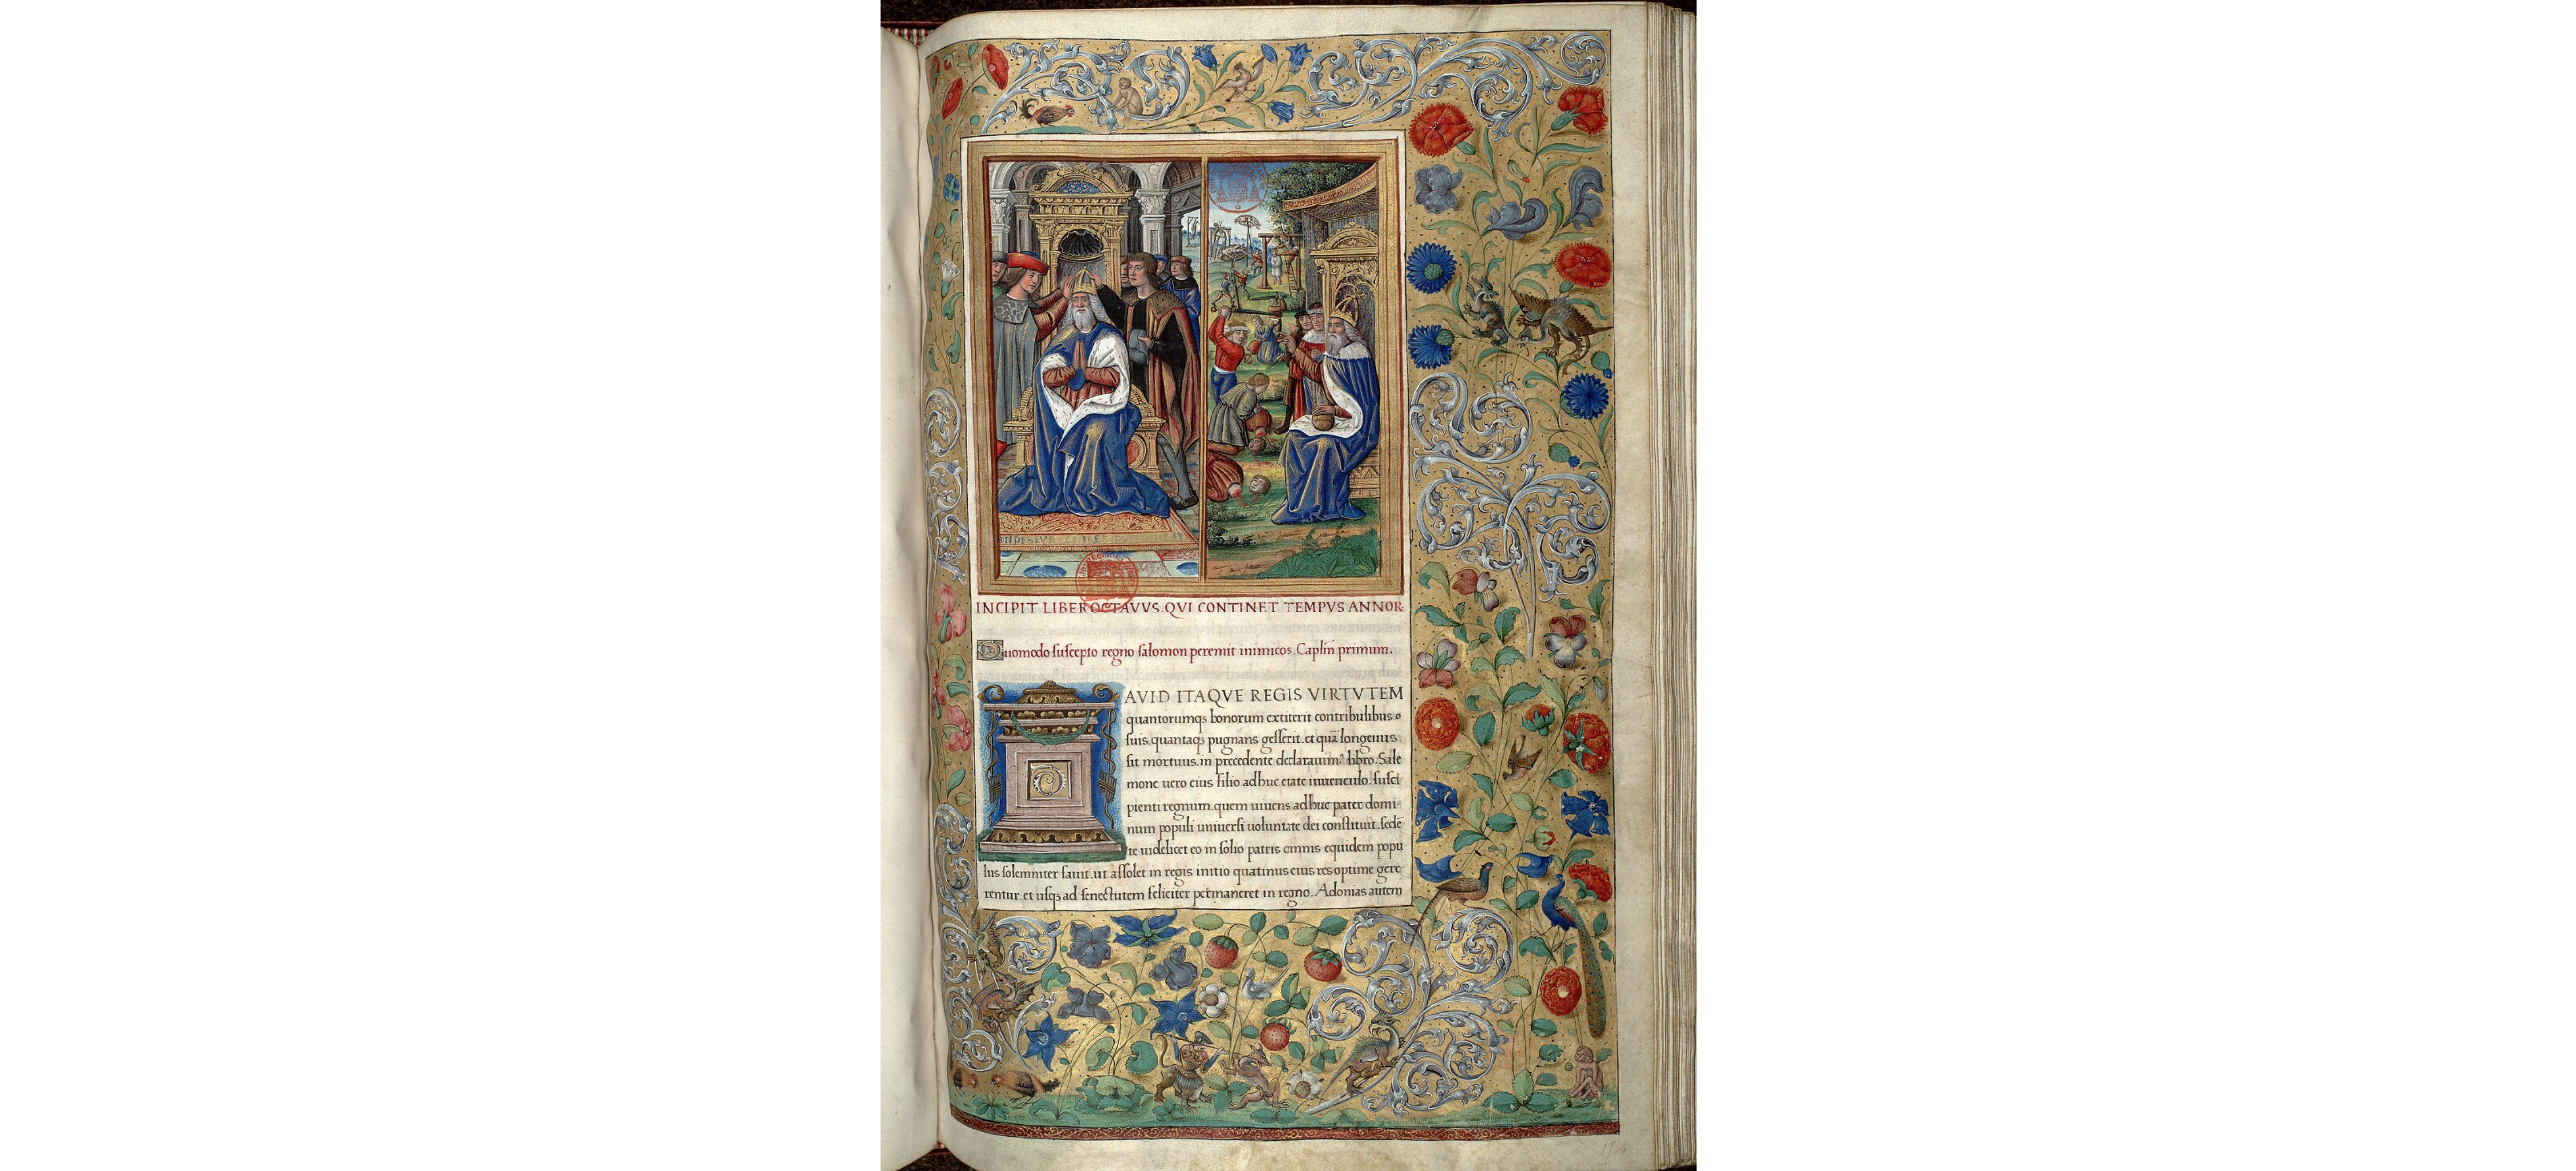 INCIPIT LIBER OCTAVVS. QVI CONTINET TEMPVS ANNOR
Quomodo suscepto regno salomon peremit inimicos. Caplm̃ primum.
DAVID ITAQVE REGIS VIRTVTEM
quantorumqꝫ bonorum extiterit contribulibus
suis. quantaqꝫ pugnans gesserit. et quã longeuus
sit mortuus. in precedente declarauimꝰ libro. Salo
mone uero eius filio adhuc etate iuuenculo. susci
pienti regnum. quem uiuens adhuc pater domi
num populi uniuersi uoluntate dei constituit. sede
te uidelicet eo in solio patris omnis equidem popu
lus solemniter fauit. ut assolet in regis initio quatinus eius res optime gere
rentur. et usqꝫ ad senectutem feliciter permaneret in regno. Adonias autem